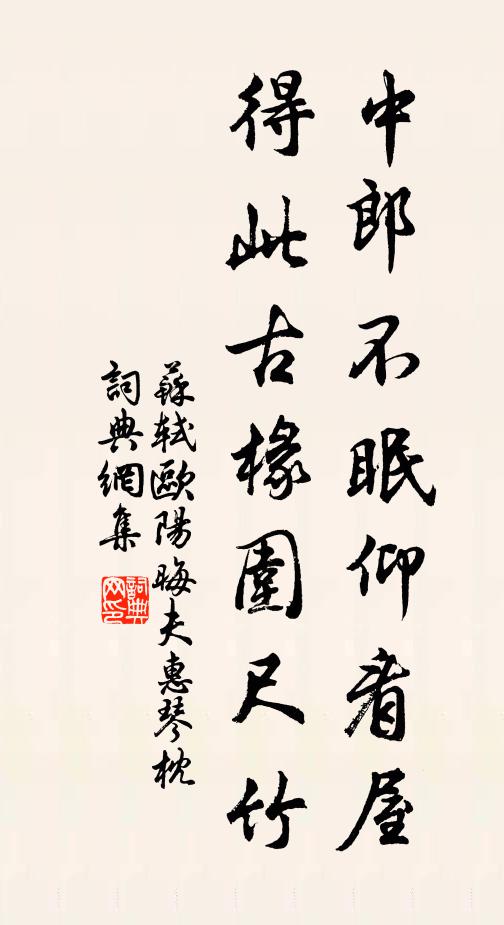 中郎不眠仰看屋
得此古椽圍尺竹
蘇軾歐陽晦夫惠琴枕
詞典網集
詞典网印